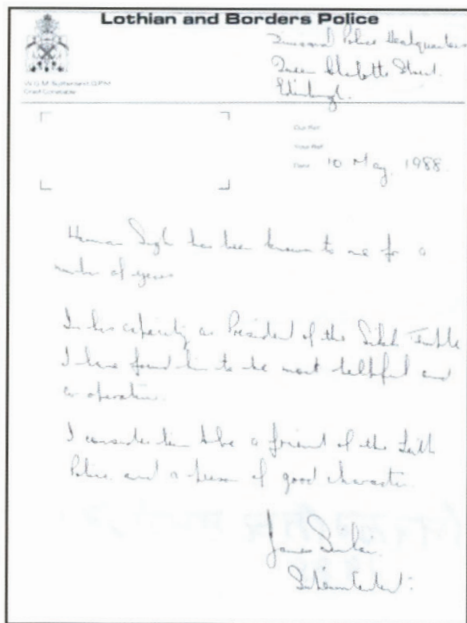 Lothian and Borders Police
W.G.M. Sutherland QPM
Chief Constable
Divisional Police Headquarters
Queen Charlotte Street
Edinburgh.
Our Ref
Your Ref
Date 10 May, 1988.
Singh has been known to me for a
number of years
In his capacity as President of the Sikh Temple
I have found him to be most helpful and
co-operative.
I consider him to be a friend of the Leith
Police and a person of good character.
James
Superintendent.